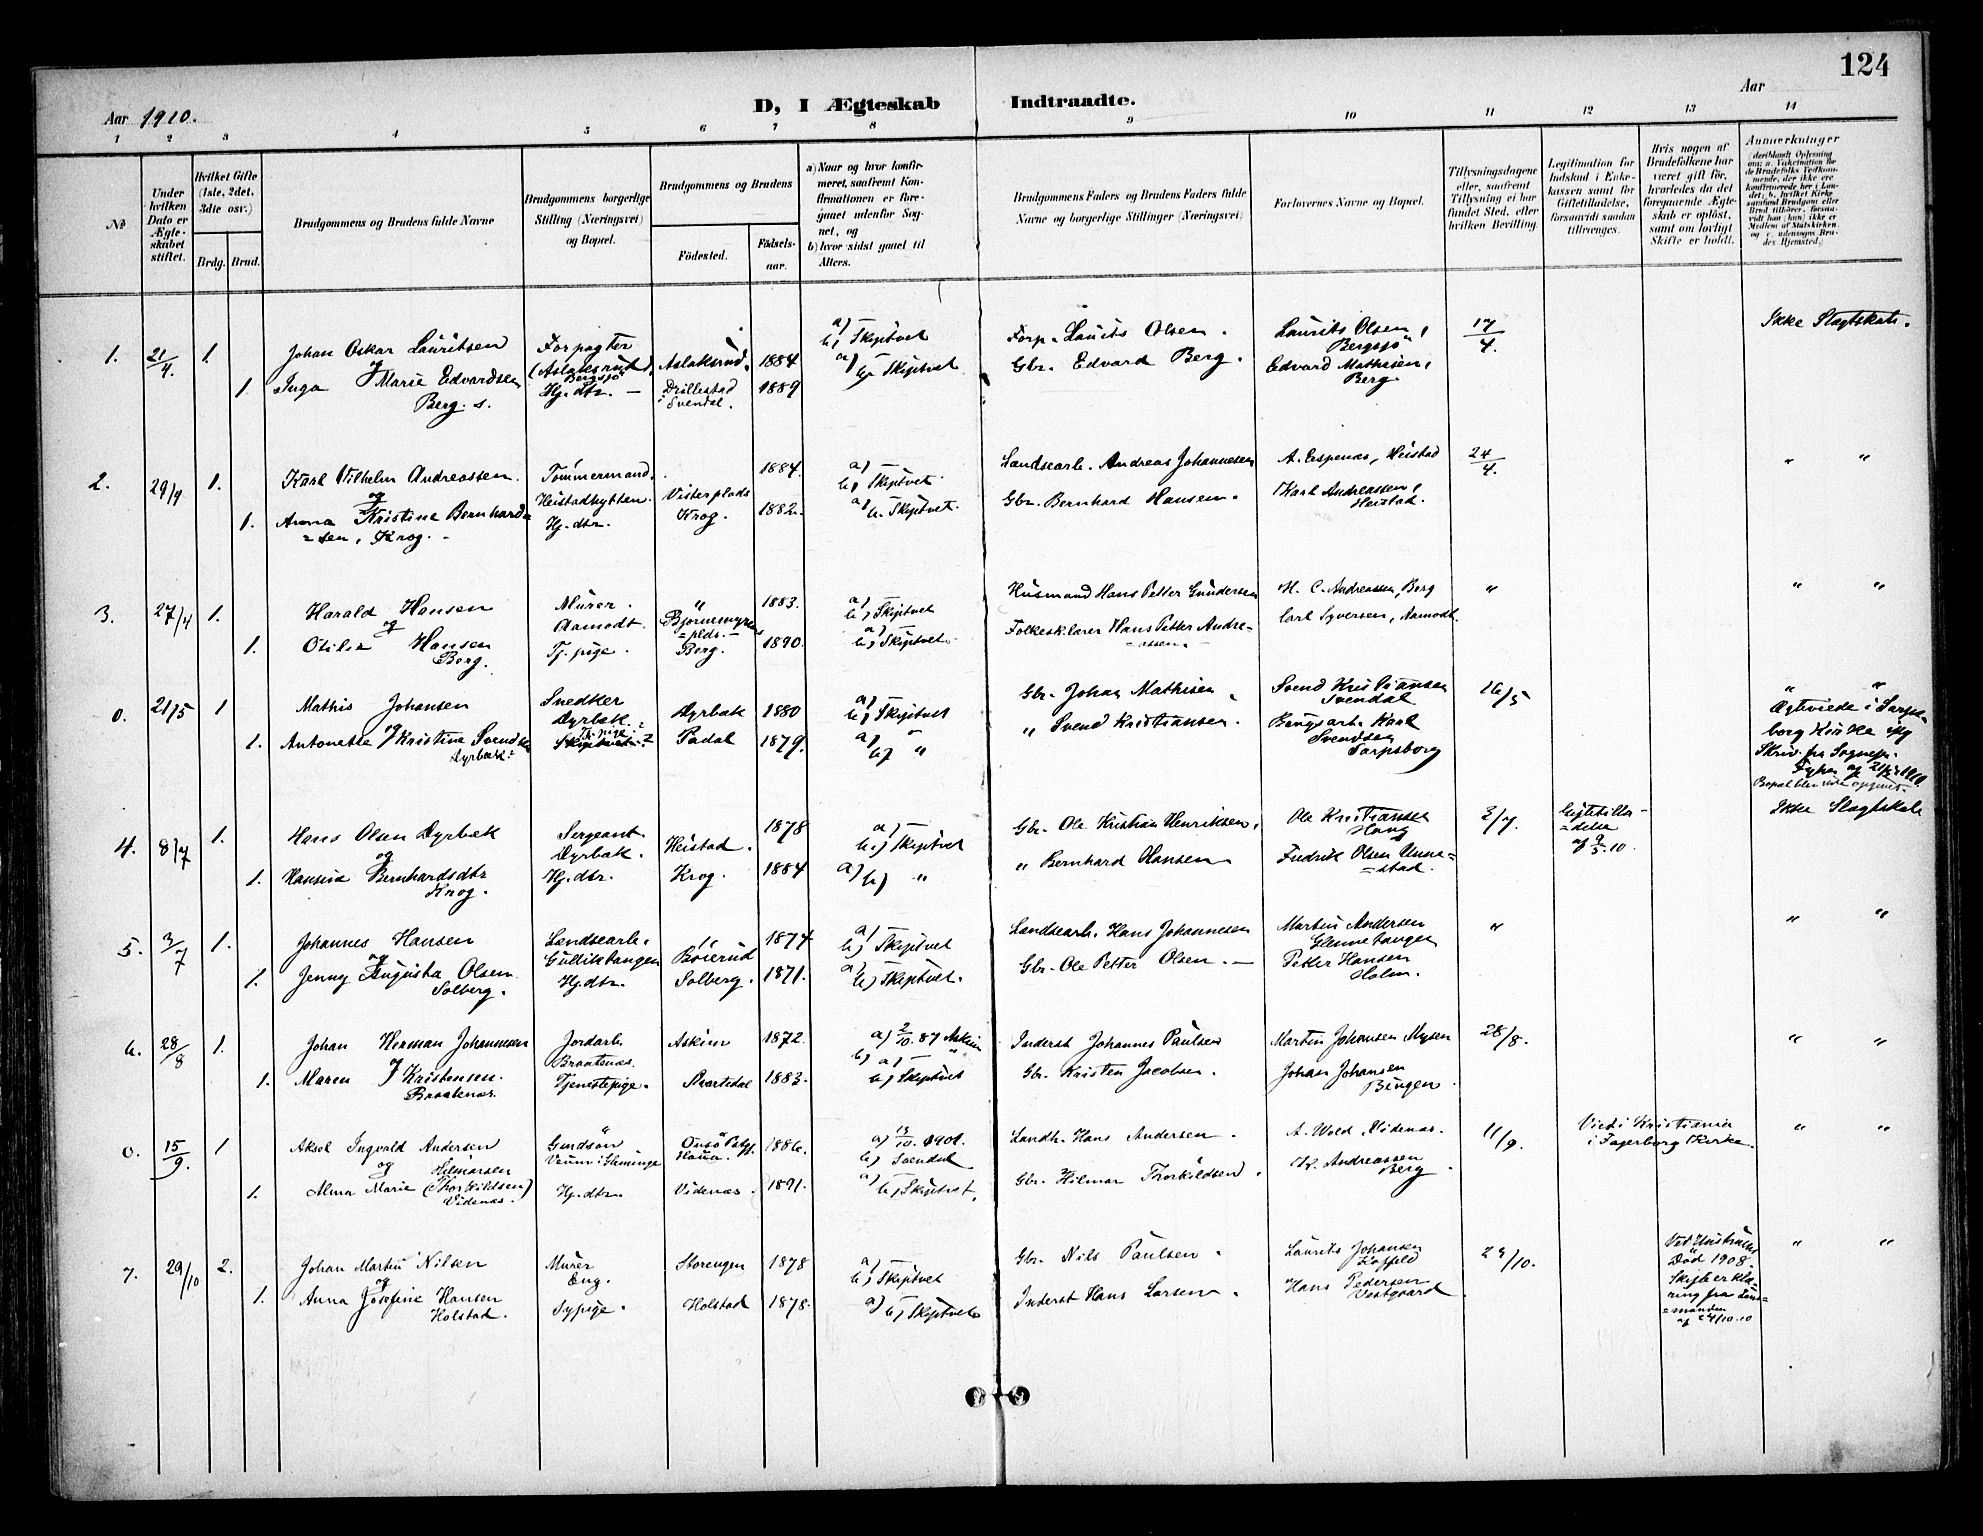 124
D, I Ægteskab Indtraadte.
Aar 1910.
Aar
1 2 3 4 5 6 7 8 9 10 11 12 13 14
No
Under hvilken Dato er Ægteskabet stiftet.
Hvilket Gifte (1ste, 2det, 3die osv.)
Brdg. Brud.
Brudgommens og Brudens fulde Navne
Brudgommens borgerlige Stilling (Næringsvei) og Bopæl.
Brudgommens og Brudens
Födested.
Födselsaar.
a) Naar og hvor konfirmeret, saafremt Konfirmationen er foregaaet udenfor Sognet, og
b) hvor sidst gaaet til Alters.
Brudgommens Faders og Brudens Faders fulde Navne og borgerlige Stillinger (Næringsvei)
Forlovernes Navne og Bopæl.
Tillysningsdagene eller, saafremt Tillysning ei har fundet Sted, efter hvilken Bevilling.
Legitimation for Indskud i Enkekassen samt for Giftetilladelse, forsaavidt saadan tiltrænges.
Hvis nogen af Brudefolkene har været gift för, hvorledes da det foregaaende Ægteskab er oplöst, samt om lovligt Skifte er holdt.
Anmærkninger
1. 21/4. 1. Johan Oskar Lauritsen Forpagter Aslaksrud. 1884 a) — b) Skiptvet Forp. Laurits Olsen. Laurits Olsen, Bergsjö 17/4. Ikke Slagtskab.
og (Aslaksrud) Bergsjö
1. Inga Marie Edvardsen Berg. s. Hj. dtr. — Drillestad Svendal. 1889 a) — b) Skiptvet Gbr. Edvard Berg. Edvard Mathisen, Berg.
2. 29/4 1. Karl Vilhelm Andreassen. Tömmermand. 1884. a) — b) Skiptvet. Landsearb. Andreas Johannesen A. Espenæs, Heistad 24/4. " "
og Heistadhytten. Visterplads
1. Anna Kristine Bernhard=sen, Krog. Hj. dtr. Krog. 1882. a) — b. Skiptvet. Gbr. Bernhard Hansen. Karl Andreassen, Heistad.
3. 27/4 1. Harald Hansen Murer. " 1883. a) — b) Skiptvet Husmand Hans Petter Gundersen H. C. Andreassen, Berg " " "
og Aamodt. Björnemyren =plds.
1. Otilie Hansen Berg. Tj. pige. Berg. 1890. a) — b) Skiptvet. Folkesklærer Hans Petter Andre=assen. Carl Syversen, Aamodt.
0. 21/5 1 Mathis Johansen Snedker Dyrbæk Dyrbæk 1880 a) — b) Skiptvet Gbr. Johan Mathisen Svend Kristiansen Svendal 16/5 " "
og
1. Antonette Kristine Svendsen Dyrbæk Tj. pige Skiptvet Padal 1879. a) — b) " " Svend Kristiansen. Karl Svendsen Sarpsborg
Ægteviede i Sarpsborg Kirke
Skriv. fra Sognepr.
4. 8/7 1. Hans Olsen Dyrbæk Sergeant. Dyrbæk. Heistad. 1878 a) — b.) Skiptvet Gbr. Ole Kristian Henriksen. Ole Kristiansen Haug 3/7. Giftetilla=delse af 2/5.10. Ikke Slagtskab
og
1. Hansine Bernhardsdtr Krog. Hj. dtr. Krog. 1884 a) — b) " " Bernhard Hansen Fredrik Olsen Unne=stad.
5. 3/7 1. Johannes Hansen Landsearb. Gullikhaugen Böierud 1874 a) — b) Skiptvet Landsearb. Hans Johannesen Martin Andersen Glennetangen " " "
og
1. Jenny Augusta Olsen. Solberg. Hj. dtr. Solberg. 1871. a) — b) Skiptvet. Gbr. Ole Petter Olsen. — Petter Hansen Holm.
6. 28/8 1. Johan Herman Johannesen Jordarb. Braatenæs. Askim 1872. a) 2/10.87 Askim b) " Inderst Johannes Paulsen Martin Johansen Mysen 28/8. " "
og
1. Maren Kristensen. Braatenæs. Tjenestepige. 1883. a) — b) Skiptvet Gbr. Kristen Jacobsen. Johan Johansen Bingen.
0. 15/9. 1 Aksel Ingvald Andersen Onsö 1886. a) 13/10. 1901. b) Svendal Landh. Hans Andersen. A. Wold, Videnæs. 11/9. Viet i Kristiania i Fagerborg Kirke. " "
og Hilmarsen
1. Alma Marie (Thorkildsen) Videnæs. Hj. dtr. Videnæs. 1891. a) — b) Skiptvet. Gbr. Hilmar Thorkildsen. Kr. Andreassen Berg.
7. 29/10 2. Johan Martin Nilsen Murer Eng. Storengen 1878 a) — b) Skiptvet Gbr. Nils Paulsen. Laurits Johansen Kopfeld 23/10. Ved Hustrues Död 1908. Skifteerklæ=ring fra Lens=manden af 24/10.10 " "
og
1. Anna Josefine Hansen Holstad. Sypige. Holstad. 1878. a) — b) Skiptvet Inderst Hans Larsen. Hans Pedersen Vestgaard